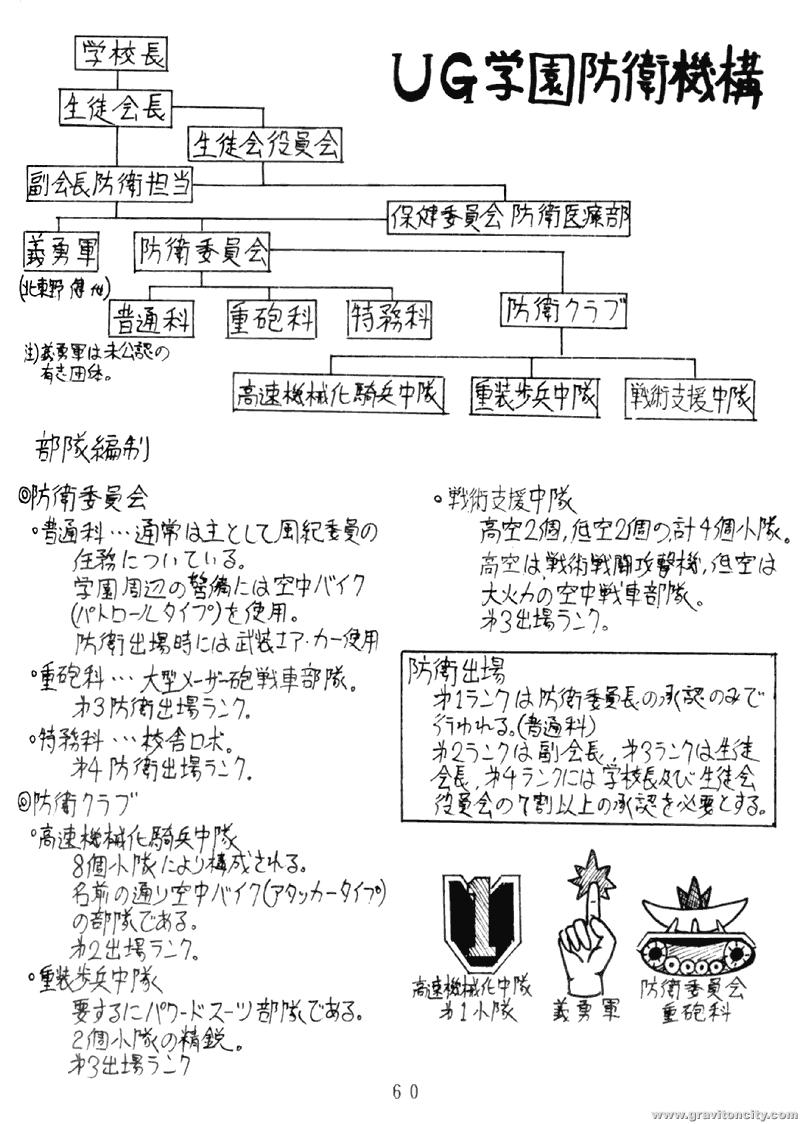 UG学園防衛機構
学校長
生徒会長
生徒会役員会
副会長防衛担当
保健委員会 防衛医療部
義勇軍
防衛委員会
普通科
重砲科
特務科
防衛クラブ
注)義勇軍は未公認の
有志団体。
高速機械化騎兵中隊
重装歩兵中隊
戦術支援中隊
部隊編制
◎防衛委員会
○普通科…通常は主として風紀委員の
任務についている。
学園周辺の警備には空中バイク
(パトロールタイプ)を使用。
防衛出場時には武装エア・カー使用
○重砲科…大型メーザー砲戦車部隊。
才3防衛出場ランク。
○特務科…校舎ロボ。
才4防衛出場ランク.
◎防衛クラブ
○高速機械化騎兵中隊
8個小隊により構成される。
名前の通り空中バイク(アタッカータイプ)
の部隊である。
才2出場ランク。
○重装歩兵中隊
要するにパワードスーツ部隊である。
2個小隊の精鋭。
才3出場ランク
○戦術支援中隊
高空2個,低空2個の,計4個小隊。
高空は,戦術戦闘攻撃機,低空は
大火力の空中戦車部隊。
才3出場ランク。
防衛出場
才1ランクは防衛委員長の承認のみで
行われる。(普通科)
才2ランクは副会長,才3ランクは生徒
会長,才4ランクには学校長及び生徒会
役員会の7割以上の承認を必要とする。
1
高速機械化中隊
才1小隊
義勇軍
防衛委員会
重砲科
60
www.gravitoncity.com